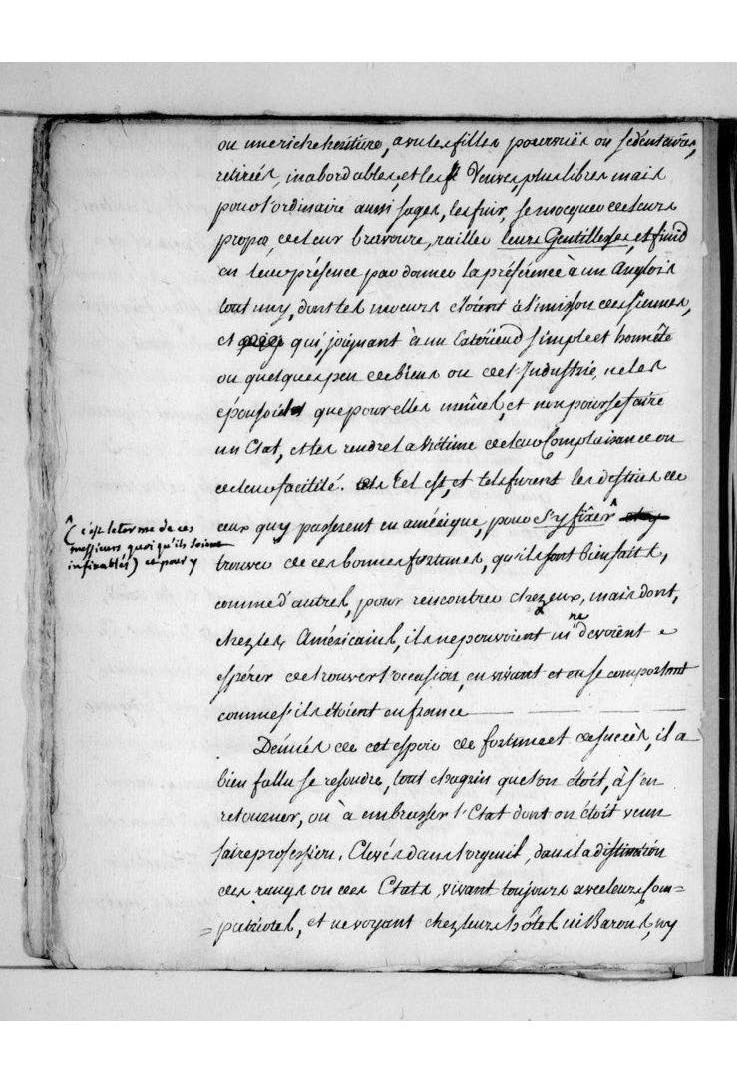 ou une riche heritiere, a vu les filles pourvuës ou sedentaires,
retirées, inabordables, et les Veuves, plus libres mais
pour l'ordinaire aussi sages, les fuir, se mocquer de leurs
propos, de leur bravoure, railler leurs Gentillesses, et finir
en leur présence par donner la préférence à un Anglois
tout uny, dont les mœurs étoient à l'unisson des siennes,
et qui, joignant à un Extérieur simple et honnête
ou quelque peu de biens ou de l'Industrie, ne les
épousoit que pour elles mêmes, et non pour se faire
un Etat, et les rendre la victime de leur Complaisance ou
de leur facilité. Tel est, et tels furent les destins de
ceux qu'y passerent en amérique, pour s'y fixer ^
(c'est le terme de ces
messieurs, quoi qu'ils soient
infixables) et pour y
trouver de ces bonnes fortunes, qu'ils sont bien faits,
comme d'autres, pour rencontrer chez eux, mais dont,
chez les Américains, ils ne pouvoient ni ne devoient
espérer de trouver l'occasion, en vivant et en se comportant
comme s'ils étoient en france
Dénués de cet espoir de fortune et de succès, il a
bien fallu se resoudre, tout chagrin que l'on étoit, à s'en
retourner, ou à embrasser l'Etat dont on étoit venu
faire profession. Elevés dans l'orgeuil, dans la distinction
des rangs ou des Etats, vivant toujours avec leurs Com=
=patriotes, et ne voyant chez leurs hôtes ni Barons, ny